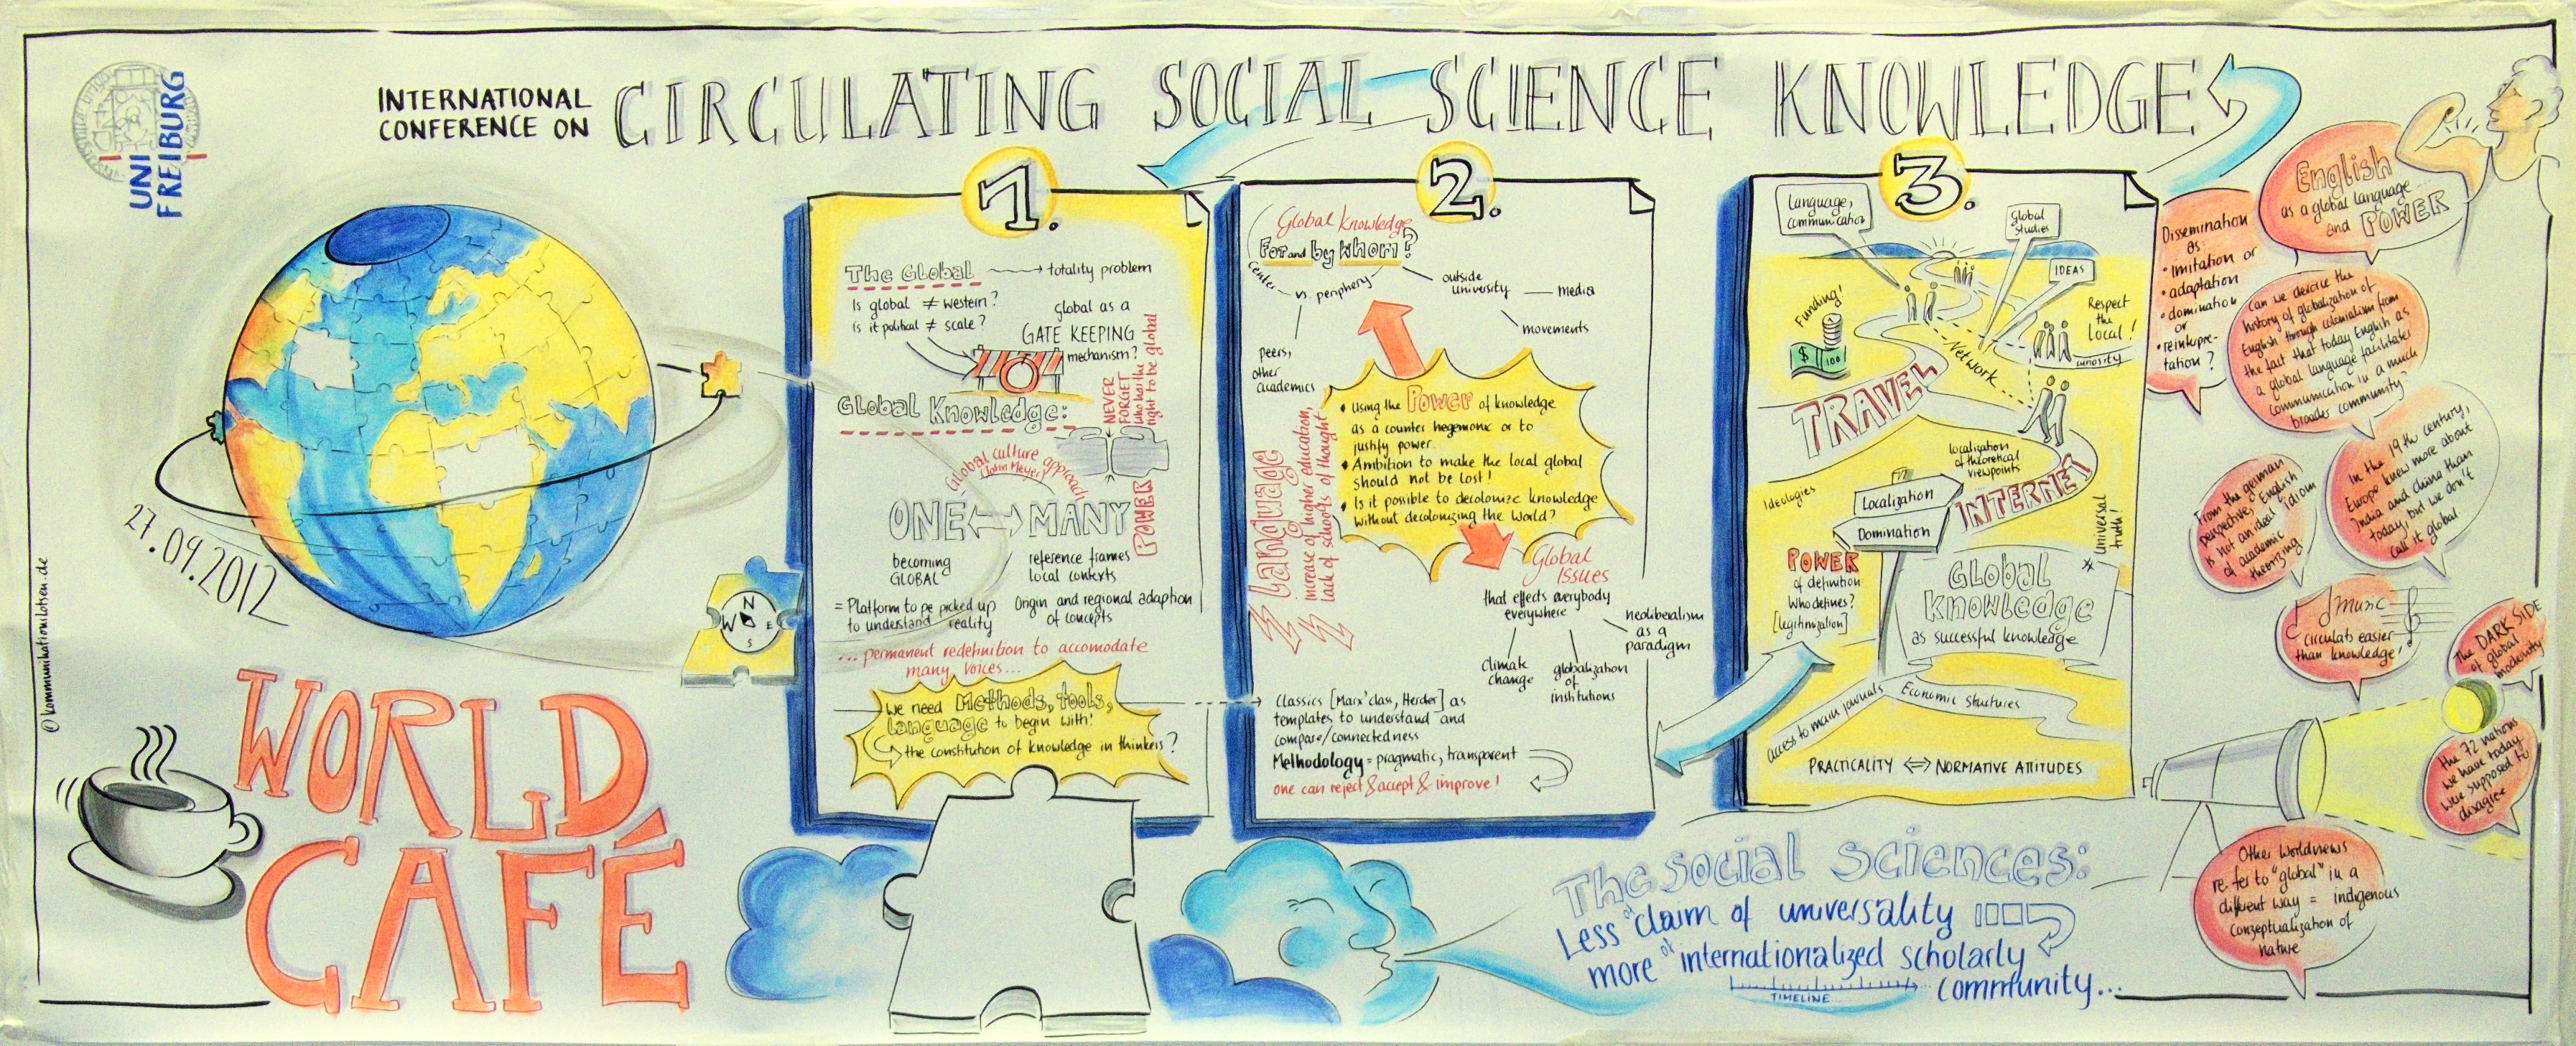 UNI
FREIBURG
INTERNATIONAL
CONFERENCE ON
CIRCULATING SOCIAL SCIENCE KNOWLEDGE
27.09.2012
© kommunikationslotsen.de
WORLD
CAFÉ
1.
The Global → totality problem
Is global ≠ western?
is it political ≠ scale?
global as a
GATE KEEPING
mechanism?
NEVER
FORGET
who has the
right to be global
Global Knowledge:
Global culture approach
(John Meyer)
POWER
ONE ↔ MANY
becoming
GLOBAL
reference frames
local contexts
= Platform to be picked up
to understand reality
Origin and regional adaption
of concepts
... permanent redefinition to accomodate
many voices...
we need Methods, tools,
language to begin with!
the constitution of knowledge in thinkers?
N
W E
S
2.
Global Knowledge
For and by whom?
center
vs. periphery
outside
university — media
movements
peers,
other
academics
Language
increase of higher education,
lack of schools of thought
• Using the Power of knowledge
as a counter hegemonic or to
justify power.
• Ambition to make the local global
should not be lost!
• Is it possible to decolonize knowledge
without decolonizing the World?
Global
Issues
that effects everybody
everywhere
climate
change
globalization
of
institutions
neoliberalism
as a
paradigm
Classics [Marx' class, Herder] as
templates to understand and
compare/connectedness
Methodology = pragmatic, transparent
one can reject & accept & improve!
3.
Language,
communication
Global
studies
IDEAS
Funding!
$ 100
Respect
the
Local!
curiosity
Network
TRAVEL
localization
of theoretical
viewpoints
INTERNET
Ideologies
Localization
Domination
Universal
truth!
POWER
of definition
Who defines?
[legitimization]
GLOBAL
Knowledge
as successful knowledge
access to main journals
Economic structures
PRACTICALITY ⇔ NORMATIVE ATTITUDES
The social sciences:
Less of claim of universality
more of internationalized scholarly
community...
TIMELINE
English
as a global language...
and POWER
Dissemination
as
• imitation or
• adaptation
• domination
or
• reinterpre-
tation?
Can we dervice the
history of globalization of
English through colonialism from
the fact that today English as
a global language facilitates
communication in a much
broader community?
In the 19th century,
Europe knew more about
India and china than
today, but we don't
call it global
From the german
perspective, English
is not an ideal idiom
of academic
theorizing
Music
circulats easier
than knowledge!
The DARK SIDE
of global
modernity
The 72 nations
we have today
were supposed to
disagree
Other Worldviews
re.fer to "global" in a
different way = indigenous
conzeptualization of
nature